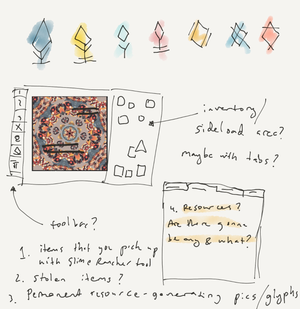 inventory/
sideload area?
maybe with tabs?
toolbar?
4. Resources?
Are there gonna
be any & what?
1. items that you pick up
with Slime Rancher tool
2. stolen items?
3. Permanent resource-generating pics/glyphs